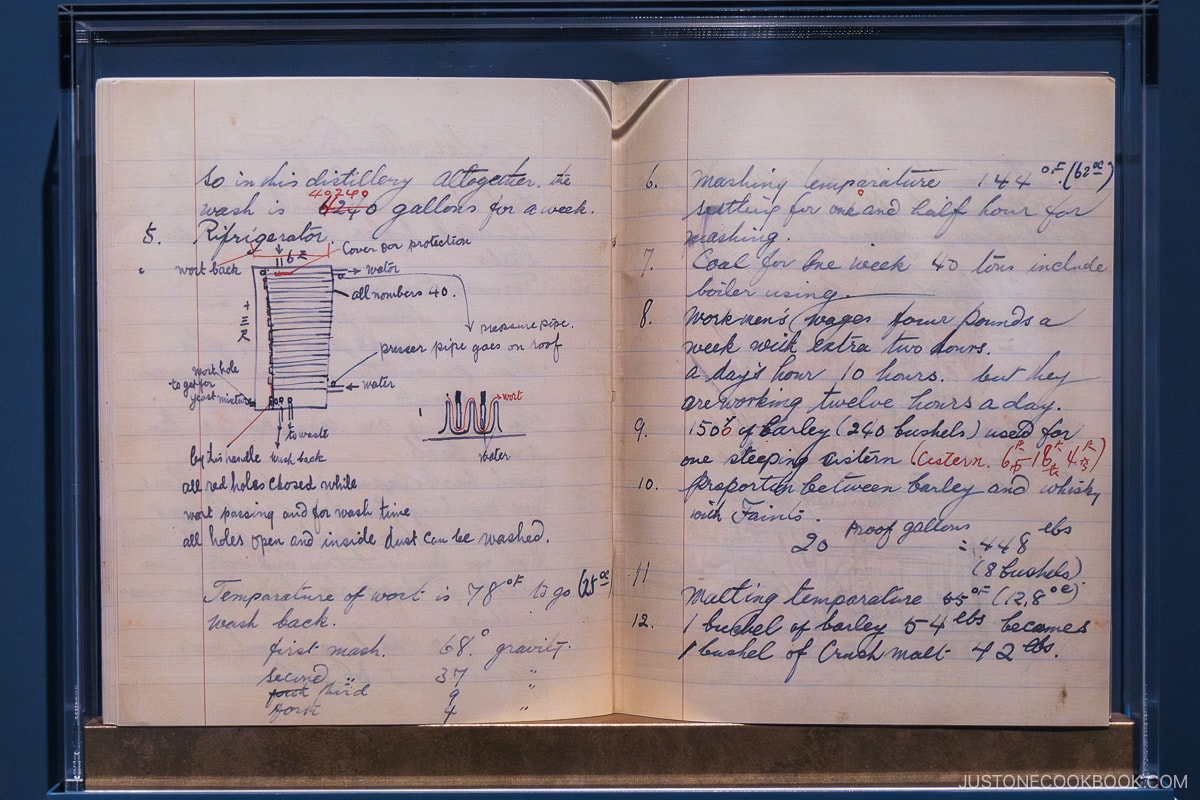 So in this distillery altogether. the
40240
wash is 6240 gallons for a week.
5. Rifrigerator.
Cover Dor protection
wort back
→ water
all numbers 40.
十三尺
pressure pipe.
presser pipe goes on roof
← water
wort hole
to get for
yeast mixture
wort
water
to waste
by this handle wash back
all red holes closed while
wort passing and for wash time
all holes open and inside dust can be washed.
Temparature of wort is 78°F to go (25°C
wash back.
first mash. 68.° gravity.
second 〃 37 〃
third 9 〃
fort 4 〃
6. Mashing temparature 144°F. (62°C)
settling for one and half hour for
mashing.
7. Coal for One week 40 tons include
boiler using.
8. Workmen's wages four pounds a
week with extra two hours.
a day's hour 10 hours. but hey
are working twelve hours a day.
9. 150% of barley (240 bushels) used for
one steeping cistern (Cistern. 6 18 4)
10. proportin between barley and whisky
with Faints.
20 Proof gallons = 448 lbs
(8 bushels)
11
Malting temparature 55°F (12.8°C)
12. 1 buchel of barley 54 lbs becomes
1 bushel of Crush malt 42 lbs.
JUSTONECOOKBOOK.COM